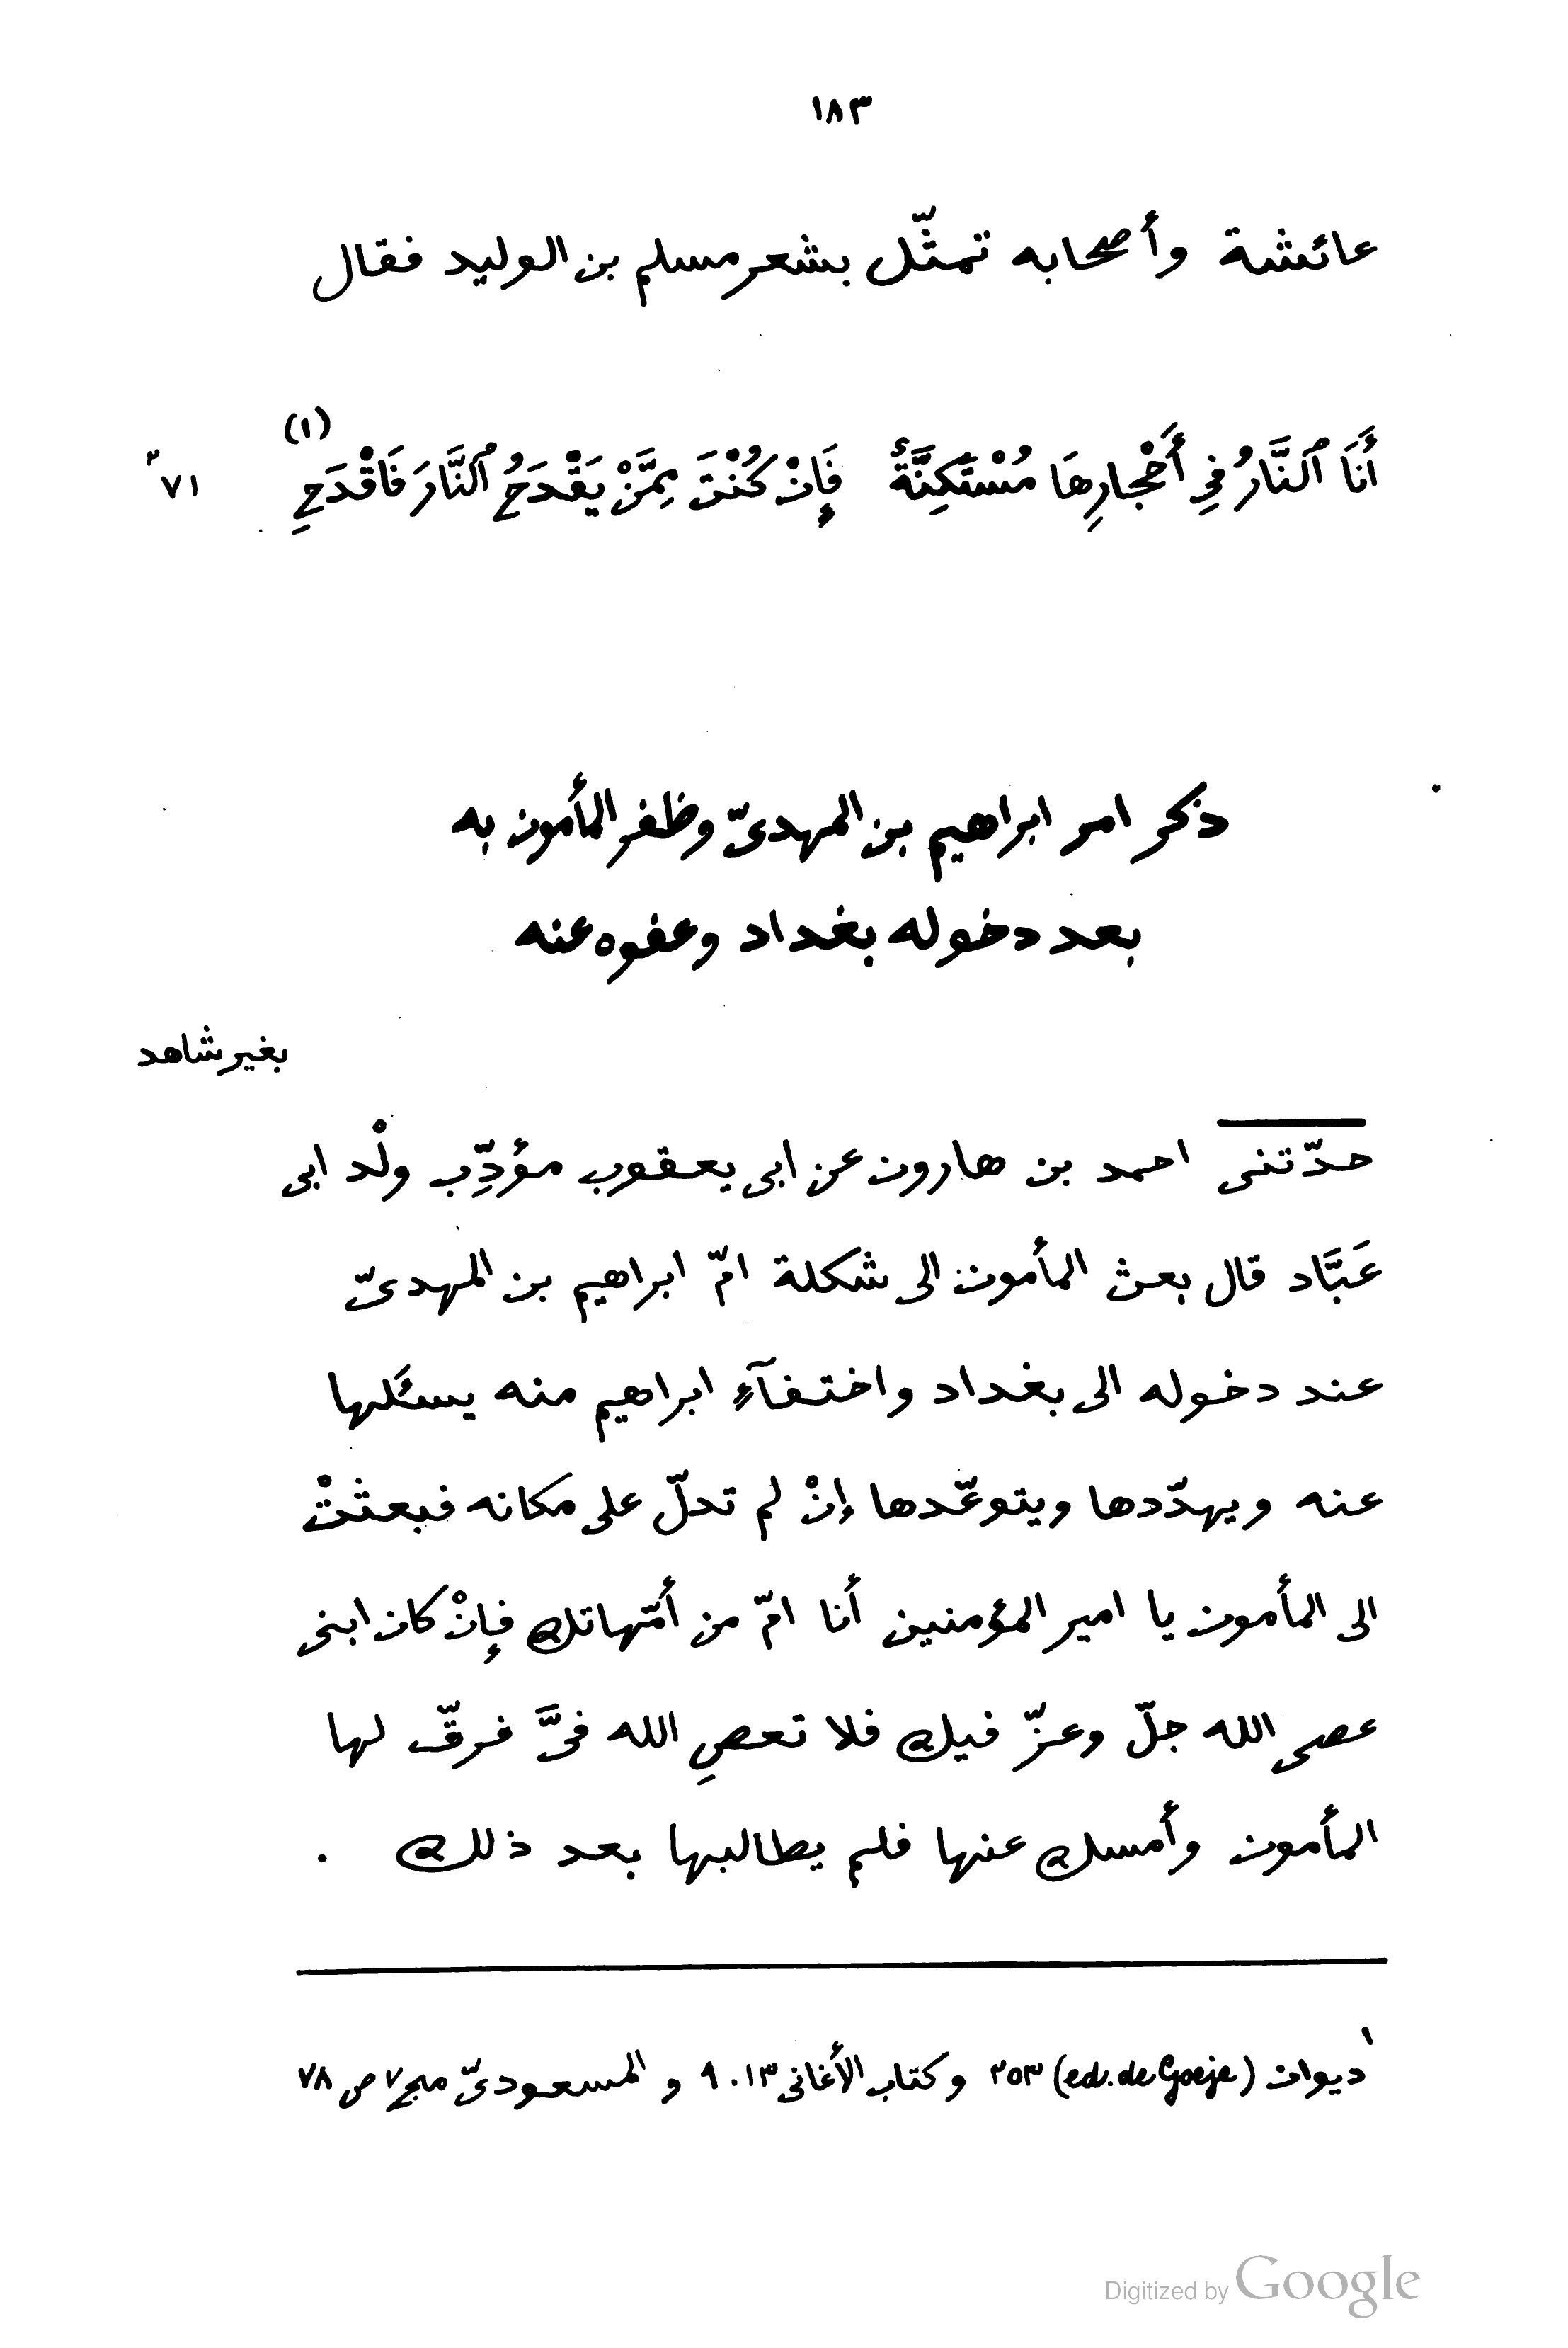 ١٨٣
عائشة وأصحابه تمثّل بشعر مسلم بن الوليد فقال
أَنَا ٱلنَّارُ فِي أَحْجارِهَا مُسْتَكِنَّةٌ فَإِنْ كُنْتَ مِمَّنْ يَقْدَحُ ٱلنَّارَ فَاقْدَحِ (١)
٧١
ذكر امر ابراهيم بن المهدىّ وظفر المأمون به
بعد دخوله بغداد وعفوه عنه
بغير شاهد
حدّثنى احمد بن هارون عن ابى يعقوب مؤدِّب ولْد ابى
عَبَّاد قال بعث المأمون الى شكلة امّ ابراهيم بن المهدىّ
عند دخوله الى بغداد واختفآءِ ابراهيم منه يسئَلها
عنه ويهدّدها ويتوعّدها إنْ لم تدلّ على مكانه فبعثتْ
الى المأمون يا امير المؤمنين أنا امّ من أمّهاتك فإنْ كان ابنى
عصى الله جلّ وعزّ فيك فلا تعصِ الله فىَّ فرقّ لها
المأمون وأمسك عنها فلم يطالبها بعد ذلك .
١ ديوان (ed. de Goeje) ٣٥٣ وكتاب الأغانى ١٣ . ٩ و المسعودىّ مج ٧ ص ٧٨
Digitized by Google